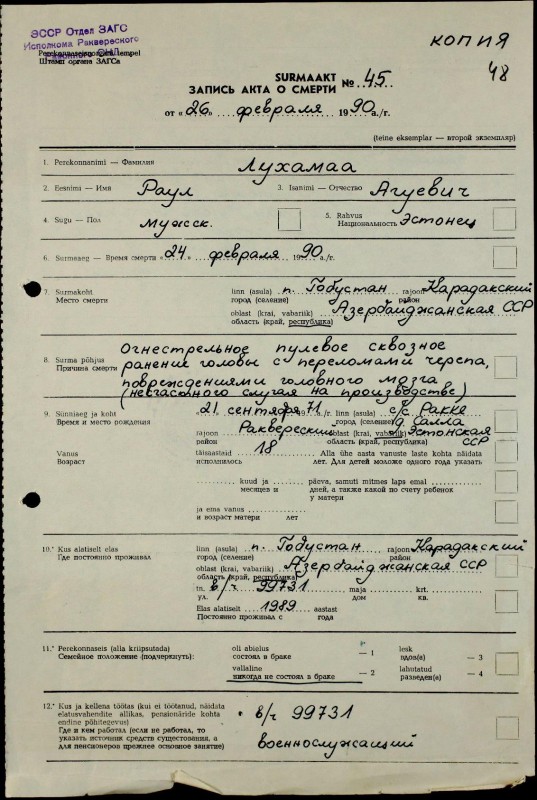 ЭССР Отдел ЗАГС
Исполкома Раквереского
Perekonnaseisuorgani tempel
Штемп органа ЗАГСа
КОПИЯ
48
SURMAAKT
ЗАПИСЬ АКТА О СМЕРТИ № 45
от «26» февраля 1990 a./г.
(teine eksemplar — второй экземпляр)
1. Perekonnanimi — Фамилия Лухамаа
2. Eesnimi — Имя Раул 3. Isanimi — Отчество Агуевич
4. Sugu — Пол мужск. 5. Rahvus Национальность Эстонец
6. Surmaaeg — Время смерти «24» февраля 1990 a./г.
7. Surmakoht linn (asula) п. Гобустан rajoon Карадакский
Место смерти город (селение) район
oblast (krai, vabariik) Азербайджанская ССР
область (край, республика)
8. Surma põhjus Огнестрельное пулевое сквозное
Причина смерти ранение головы с переломами черепа,
повреждениями головного мозга
(несчастного случая на производстве)
9. Sünniaeg ja koht « 21 сентября 71 linn (asula) с/с Ракке
Время и место рождения город (селение) д. Салла
rajoon Раквереский oblast (krai, vabariik) Эстонская
район область (край, республика) ССР
Vanus täisaastaid 18 Alla ühe aasta vanuste laste kohta näidata
Возраст исполнилось лет. Для детей моложе одного года указать
kuud ja päeva, samuti mitmes laps emal
месяцев и дней, а также какой по счету ребенок
у матери
ja ema vanus
и возраст матери лет
10. Kus alatiselt elas linn (asula) п. Гобустан rajoon Карадакский
Где постоянно проживал город (селение) район
oblast (krai, vabariik) Азербайджанская ССР
область (край, республика)
tn. в/ч 99731 maja krt.
ул. дом кв.
Elas alatiselt 1989 aastast
Постоянно проживал с года
11. Perekonnaseis (alla kriipsutada) oli abielus — 1 lesk — 3
Семейное положение (подчеркнуть): состоял в браке вдов(а)
vallaline — 2 lahutatud — 4
никогда не состоял в браке разведен(а)
12. Kus ja kellena töötas (kui ei töötanud, näidata в/ч 99731
elatusvahendite allikas, pensionäride kohta
endine põhitegevus)
Где и кем работал (если не работал, то военнослужащий
указать источник средств существования, а
для пенсионеров прежнее основное занятие)